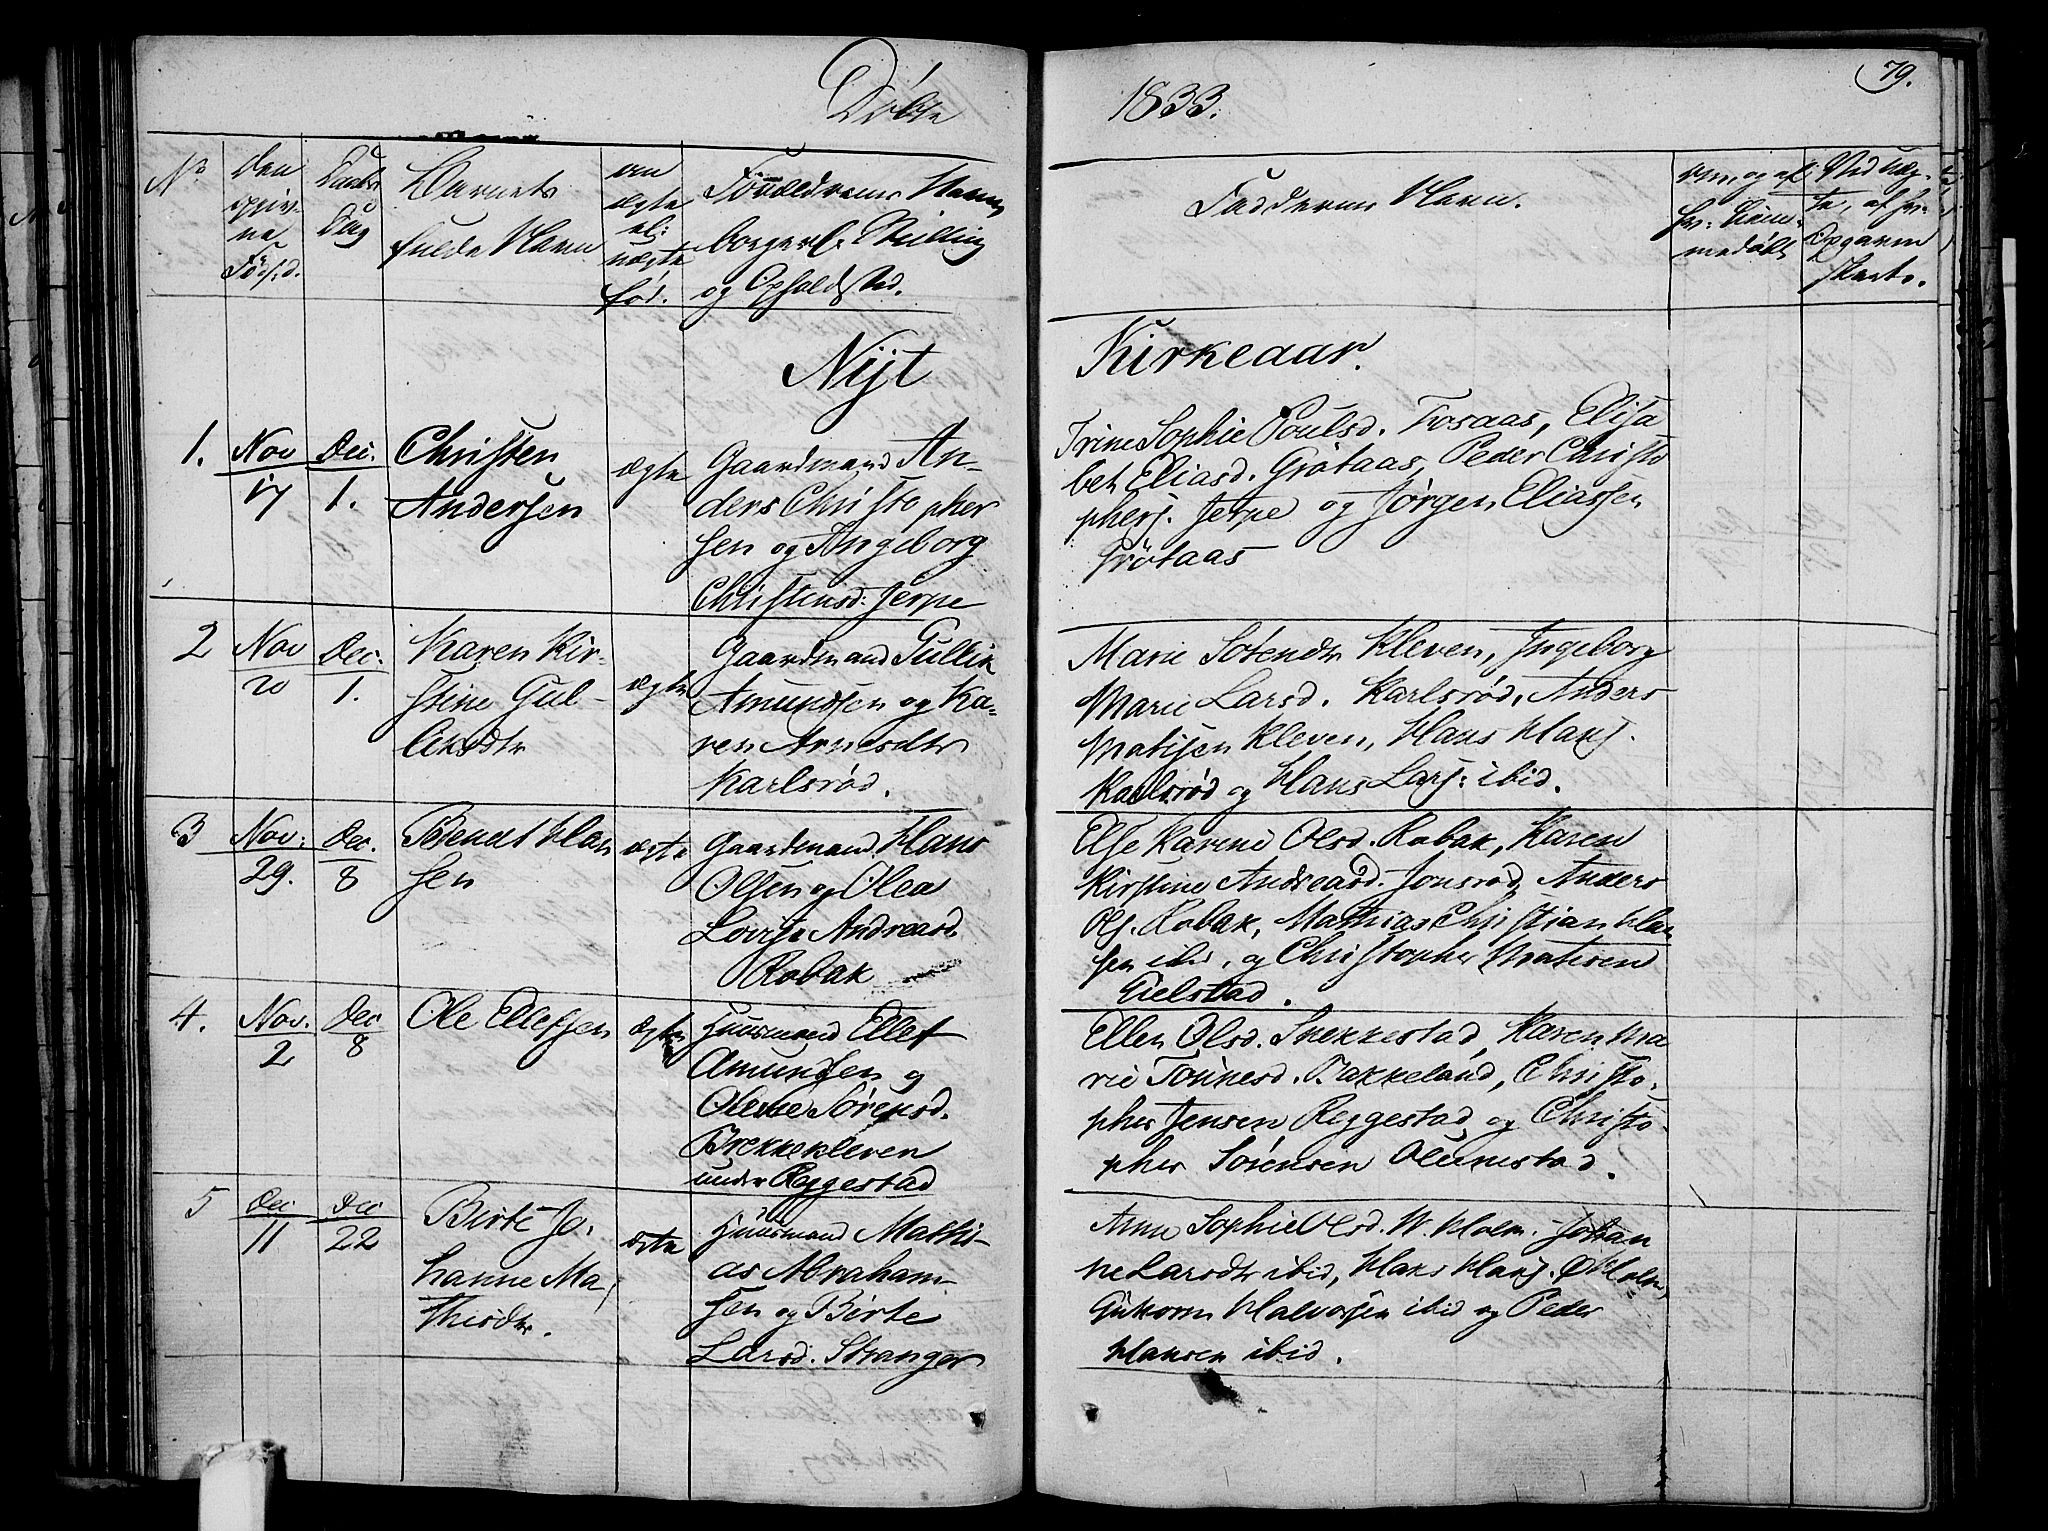 Døbte
1833.
79.
No
den opgivne Føds.d.
Daabs Dag
Barnets fulde Navn
om ægte el: uægte fød.
Forældrenes Navn, borgerl. Stilling og Opholdsted.
Faddernes Navn.
Nijt
Kirkeaar.
1.
Nov 17
Dec. 1.
Christen
Andersen
ægte
Gaardmand An-
ders Christopher
sen og Angeborg
Christensd: Jerpe
Trine Sophie Poulsd. Fosaas, Elisa
bet Eliasd. Grötaas, Peder Christo
phers. Jerpe og Jørgen Eliassen
Grötaas
2
Nov 20
Dec. 1.
Karen Kir-
stine Gul-
liksdtr
ægte
Gaardmand Gullik
Amundsen og Ka-
ren Arnesdtr
Karlsrød.
Marie Sørensdtr Kleven, Ingeborg
Marie Larsd. Karlsrød, Anders
Matisen Kleven, Hans Hans.
Karlsrød og Hans Lars: ibid.
3
Nov: 29.
Dec. 8
Berendt Han
sen
ægte
Gaardmand Hans
Olsen og Olea
Lovise Andreasd.
Robak
Else Karine Olsd. Robak, Karen
Kirstine Andreasd. Jonsrød, Anders
Ols. Robak, Mathias Christian Han
sen ibid, og Christopher Matisen
Gielstad.
4.
Nov. 2
Dec 8
Ole Ellefsen
ægte
Huusmand Ellef
Amundsen og
Olene Sørensd.
Brekkekleven
under Reggestad
Ellen Olsd. Snekkestad, Karen Ma
rie Tönnesd. Bakkeland, Christo-
pher Jensen Reggestad og Christo-
pher Sörensen Olumstad.
5
Dec 11
Dec 22
Birte Jo,
hanne Ma,
thisdtr.
ægte
Huusmand Mathi-
as Abraham-
sen og Birte
Larsd. Stranger
Anne Sophie Olsd. W. Holm. Johan
ne Larsdtr ibid, Hans Hans. Ø Holm
Guttorm Halvorsen ibid og Peder
Hansen ibid.